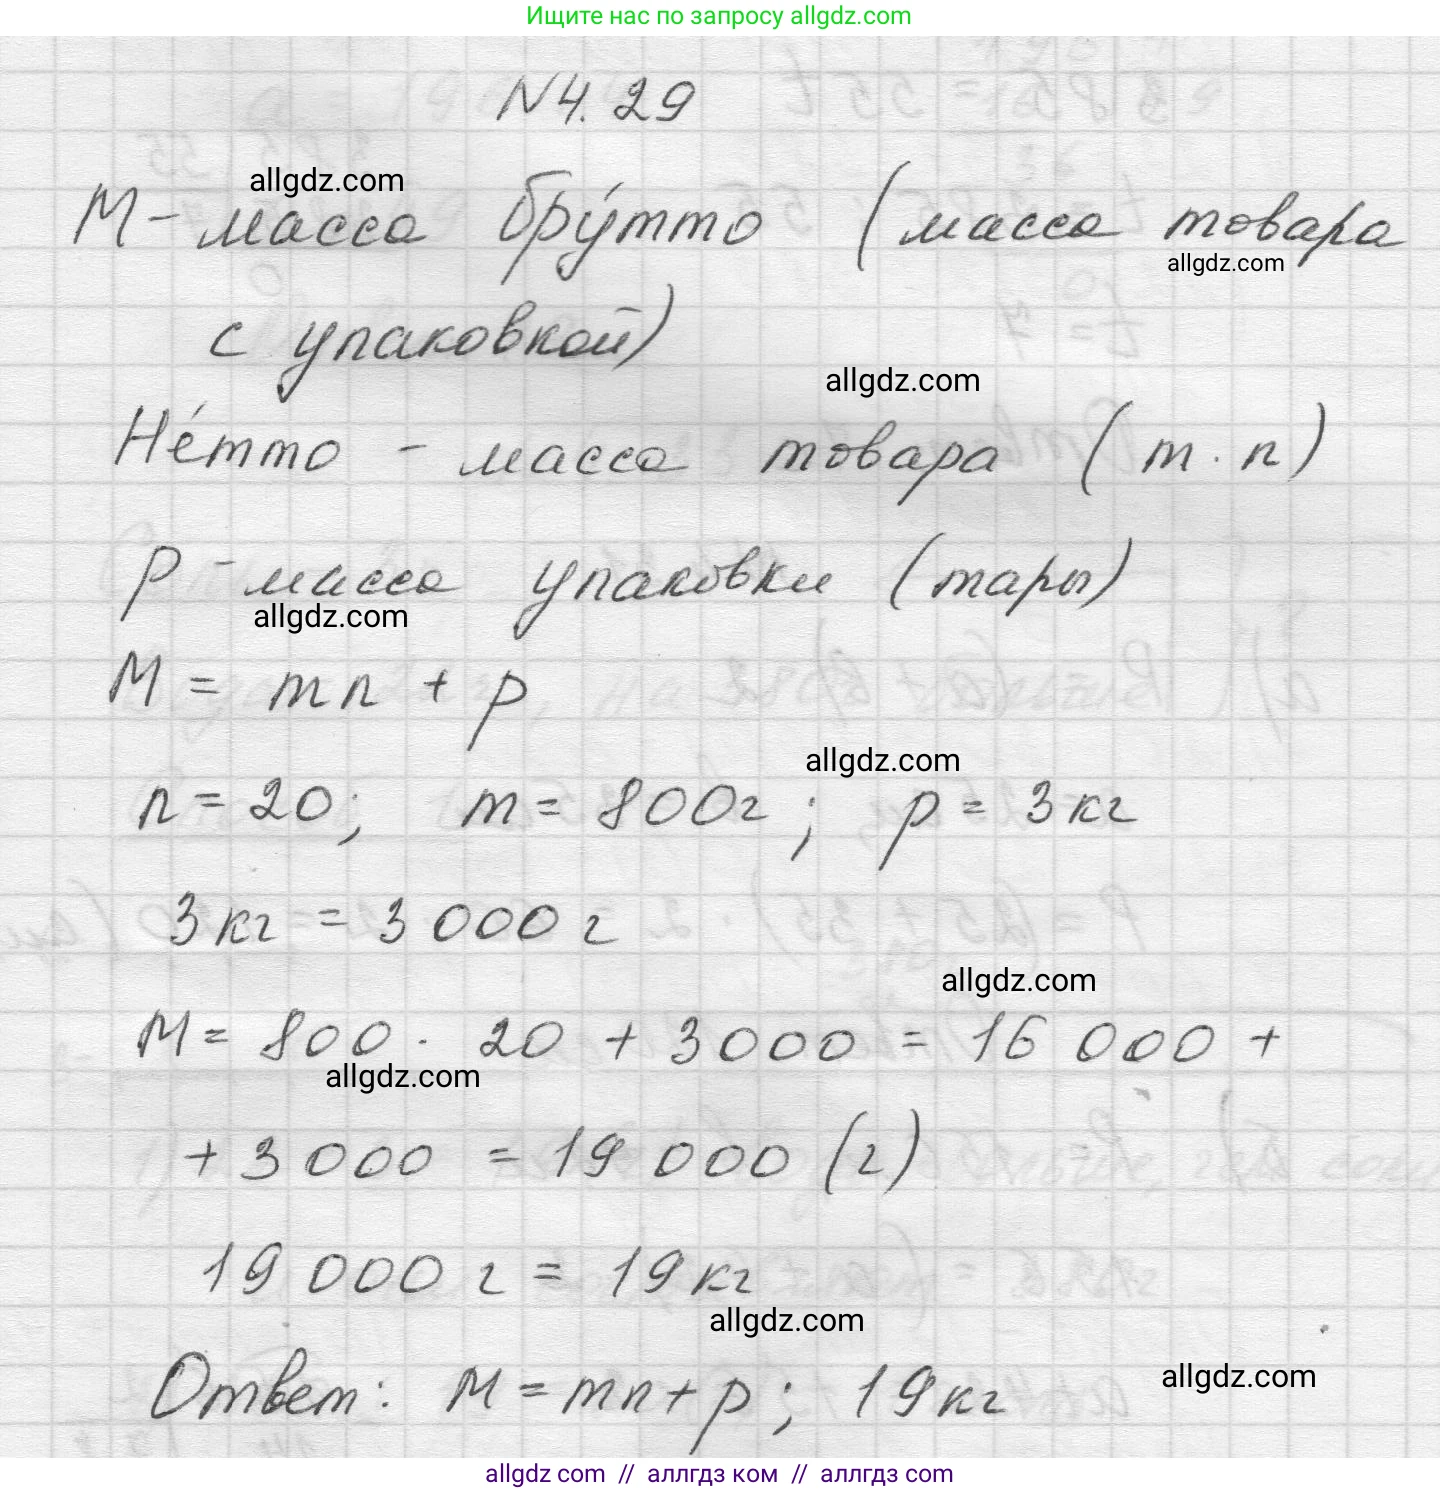 Ищите нас по запросу allgdz.com
N4.29
allgdz.com
М - масса бру́тто (масса товара
allgdz.com
с упаковкой)
allgdz.com
Не́тто - масса товара (m · n)
p - масса упаковки (тары)
allgdz.com
M = mn + p
allgdz.com
n = 20; m = 800г; p = 3кг
3кг = 3000г
allgdz.com
M = 800 · 20 + 3000 = 16 000 +
allgdz.com
+ 3 000 = 19 000 (г)
19 000 г = 19 кг
allgdz.com
allgdz.com
Ответ: M = mn + p; 19кг
allgdz com // аллгдз ком // аллгдз com